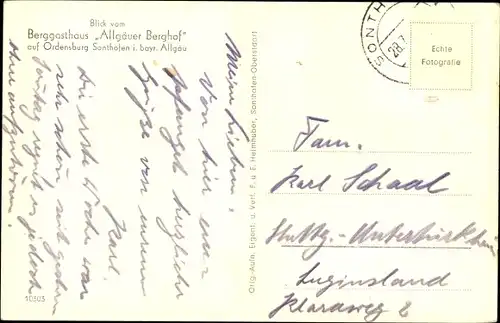 Blick vom
Berggasthaus „Allgäuer Berghof"
auf Ordensburg Sonthofen i. bayr. Allgäu
Meine Lieben!
Von hier aus
empfangt herzliche
Grüsse von eurem
Karl.
Die erste Woche war
sehr schön, seit gestern
Sonntag regnet es jedoch
ohne aufzuhören.
10303
Orig.-Aufn. Eigent. u. Verf. F. u. E. Heimhuber, Sonthofen-Oberstdorf
SONTH
28.7.
Echte
Fotografie
Fam.
Karl Schaal
Stuttg.-Untertürkheim
Luginsland
Klaraweg 2